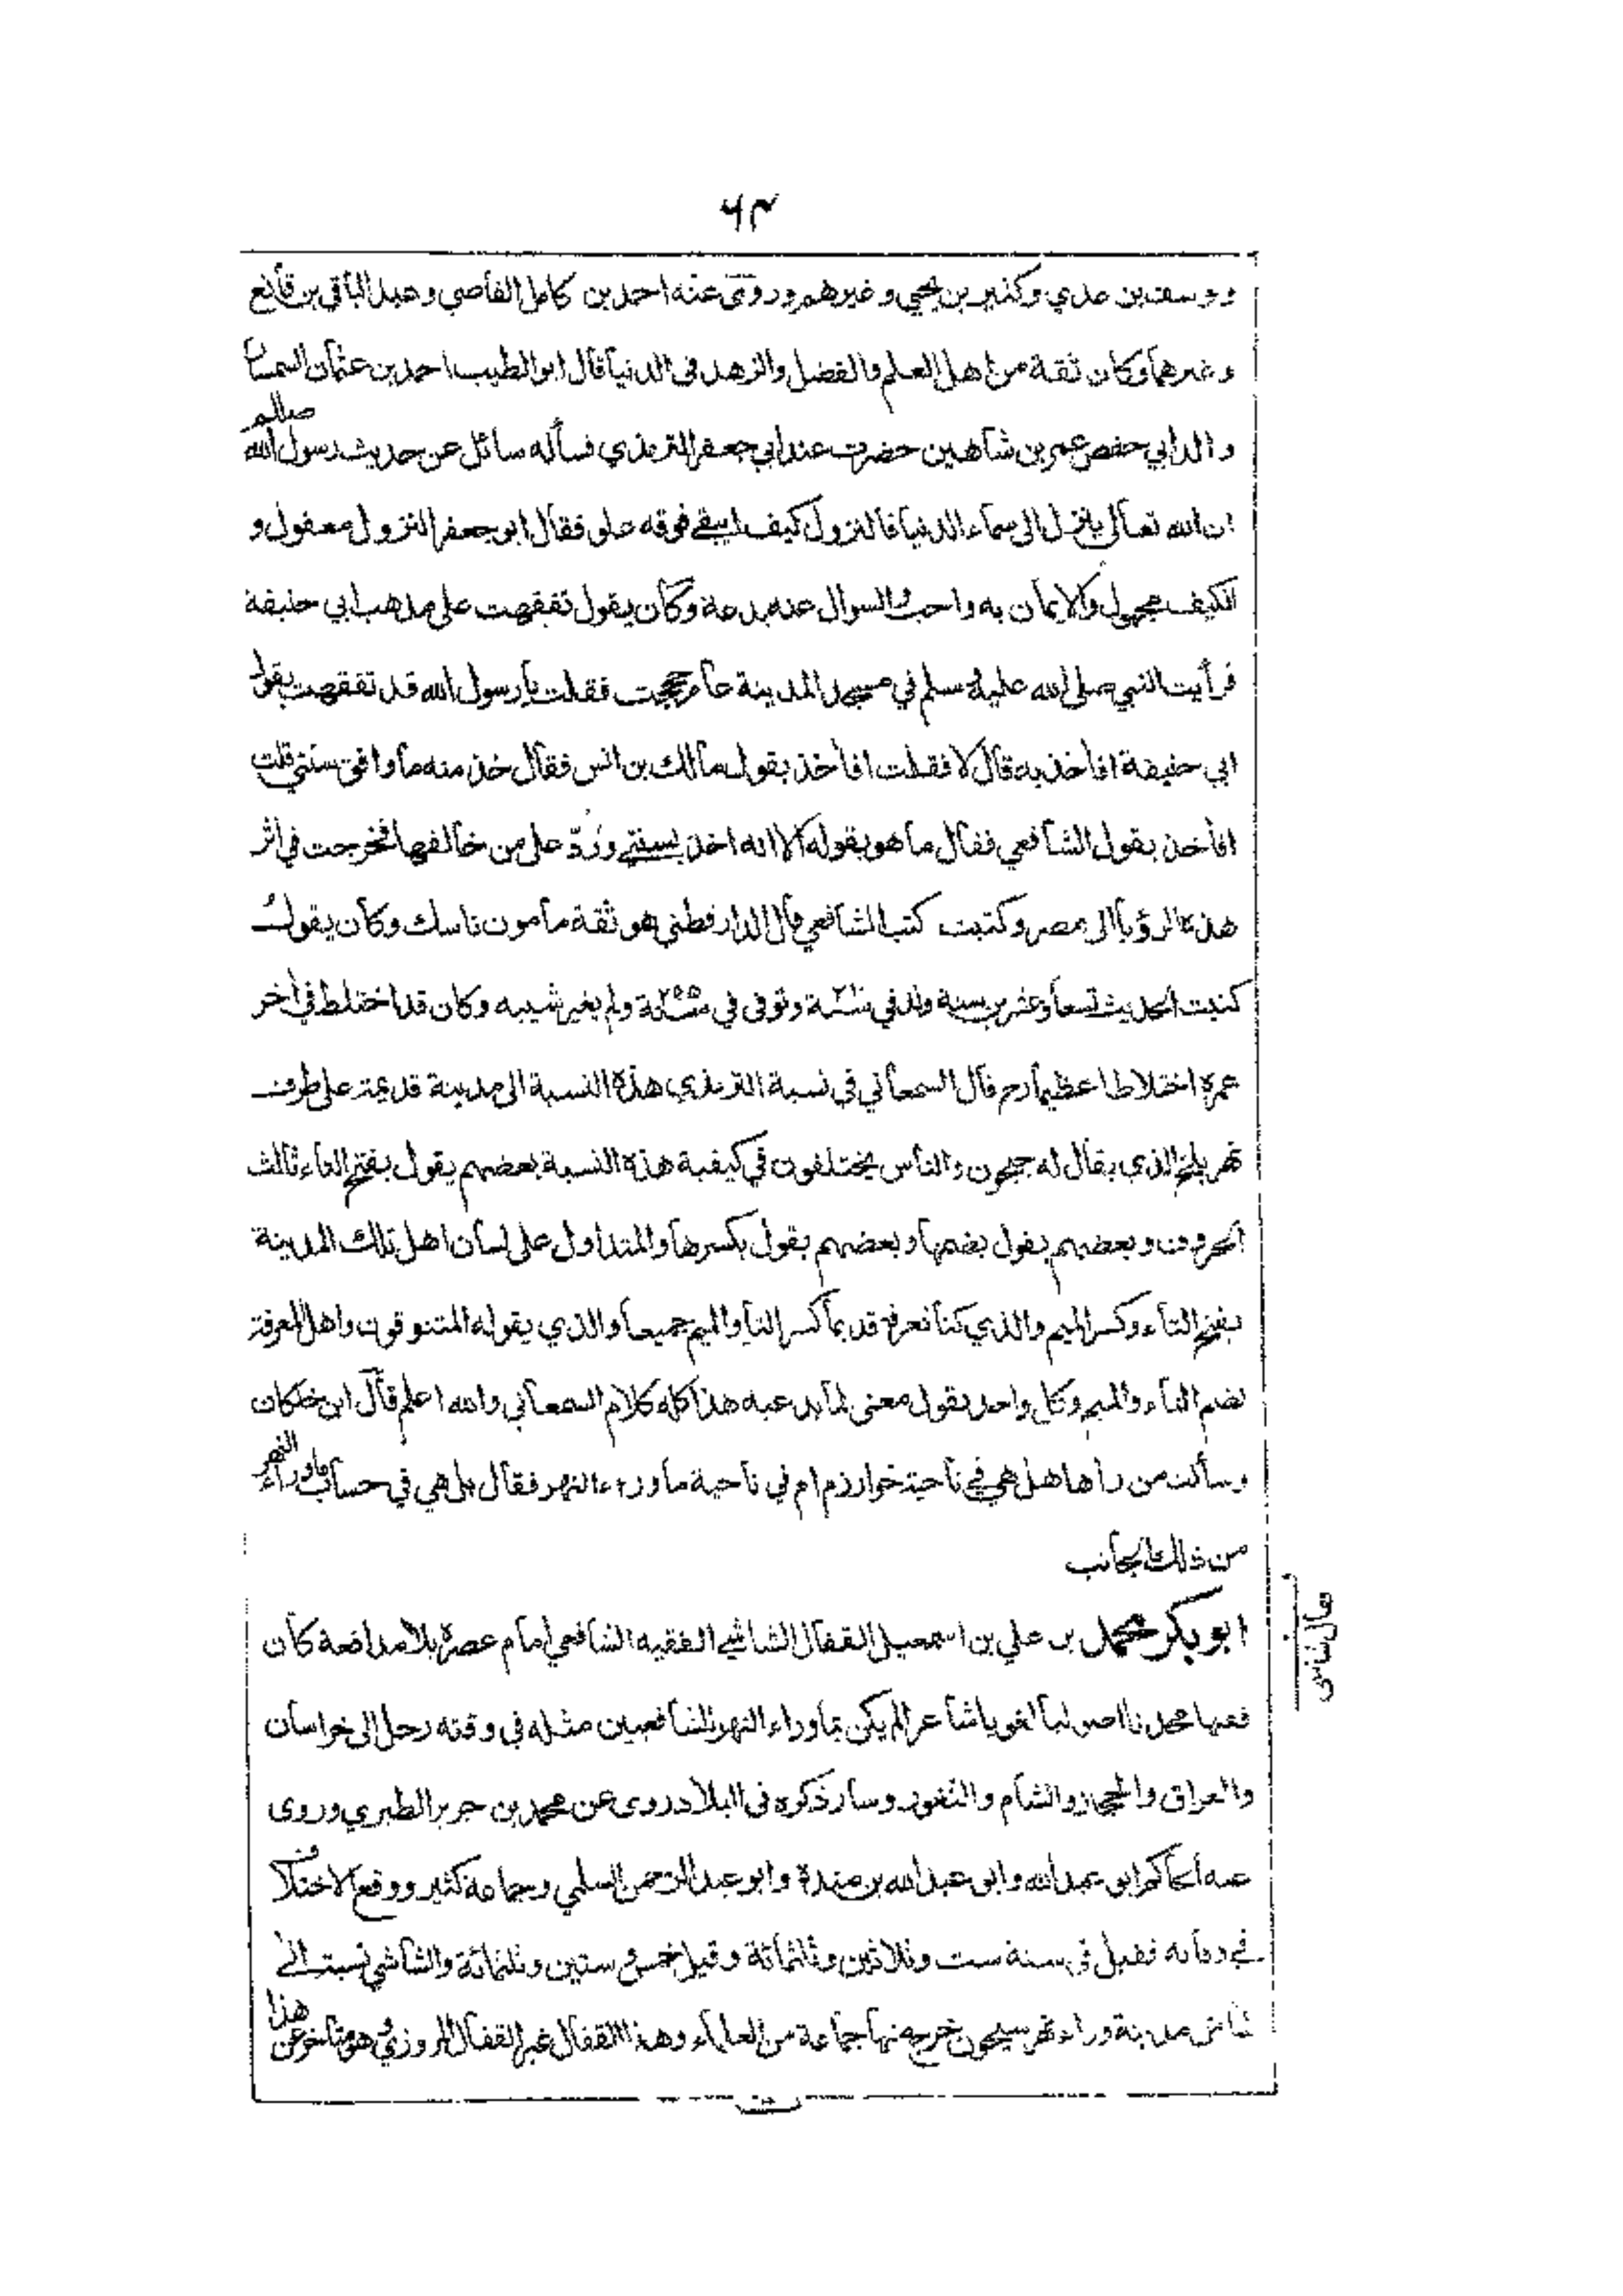 ٦٣
ويوسف بن عدي وكثير بن يحيي وغيرهم وروى عنه احمد بن كامل القاضي وعبد الباقي بن قانع
وغيرهما وكان ثقة من اهل العلم والفضل والزهد في الدنيا قال ابو الطيب احمد بن عثمان السمسا
والد ابي حفص عمر بن شاهين حضرت عند ابي جعفر الترمذي فسأله سائل عن حديث رسول الله صللم
ان الله تعالى ينزل الى سماء الدنيا فالنزول كيف يبقى فوقه علو فقال ابو جعفر النزول معقول و
الكيف مجهول والايمان به واجب والسوال عنه بدعة وكان يقول تفقهت على مذهب ابي حنيفة
فرأيت النبي صلى الله عليه وسلم في مسجد المدينة عام حججت فقلت يا رسول الله قد تفقهت بقول
ابي حنيفة افأخذ به قال لا فقلت افأخذ بقول مالك بن انس فقال خذ منه ما وافق سنتي قلت
افأخذ بقول الشافعي فقال ما هو بقوله الا انه اخذ بسنتي ورد على من خالفها فخرجت في اثر
هذه الرؤيا الى مصر وكتبت كتب الشافعي قال الدارقطني هو ثقة مأمون ناسك وكان يقول
كتبت الحديث تسعا وعشرين سنة ولد في سنة وتوفى في سنة ٢٩٥ ولم يغير شيبه وكان قد اختلط في اخر
عمره اختلاطا عظيما رح قال السمعاني في نسبة الترمذي هذه النسبة الى مدينة قديمة على طرف
نهر بلخ الذي يقال له جيحون والناس يختلفون في كيفية هذه النسبة بعضهم يقول بفتح التاء ثالث
الحروف وبعضهم يقول بضمها وبعضهم يقول بكسرها والمتداول على لسان اهل تلك المدينة
بفتح التاء وكسر الميم والذي كنا نعرفه قديما كسر التا والميم جميعا والذي يقوله المتنوقون واهل المعرفة
بضم التاء والميم وكل واحد يقول معنى لما يدعيه هذا كله كلام السمعاني والله اعلم قال ابن خلكان
وسألت من رأها هل هي في ناحية خوارزم ام في ناحية ما وراء النهر فقال بل هي في حساب ما وراء النهر
من ذلك الجانب
ابو بكر محمد بن علي بن اسمعيل القفال الشاشي الفقيه الشافعي امام عصره بلا مدافعة كان
فقيها محدثا اصوليا لغويا شاعرا لم يكن بما وراء النهر للشافعيين مثله في وقته رحل الى خراسان
والعراق والحجاز والشام والثغور وسار ذكره في البلاد روى عن محمد بن جرير الطبري وروى
عنه الحاكم ابو عبد الله وابو عبد الله بن مندة وابو عبد الرحمن السلمي وجماعة كثير ووقع الاختلاف
في وفاته فقيل في سنة ست وثلاثين وثلثمائة وقيل خمس وستين وثلثمائة والشاشي نسبة الى
شاش مدينة وراء نهر سيحون يخرج منها جماعة من العلماء وهذا القفال غير القفال المروزي وهو متأخر عن هذا
قفال شاشى